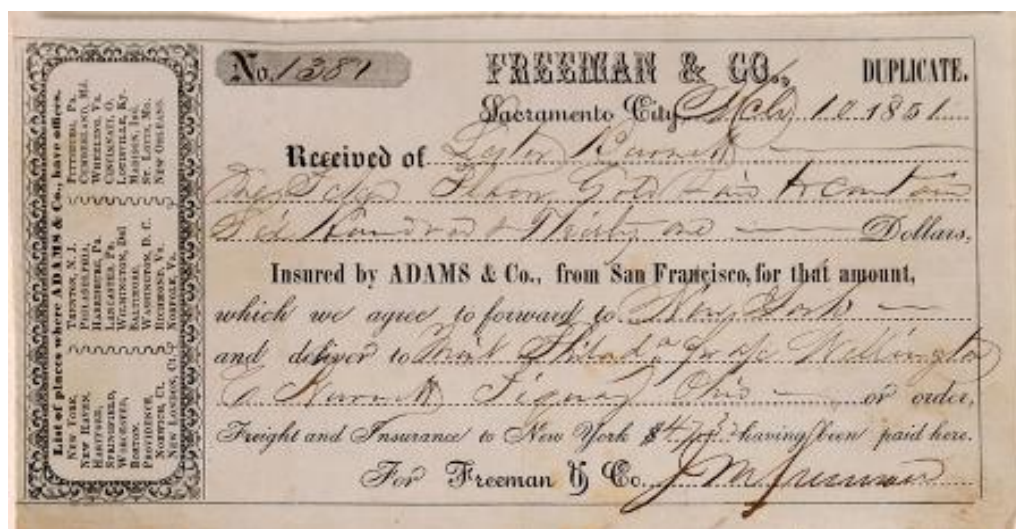 List of places where ADAMS & Co., have offices.
NEW YORK,
NEW HAVEN,
HARTFORD,
SPRINGFIELD,
WORCESTER,
BOSTON,
PROVIDENCE,
NORWICH, Ct.
NEW LONDON, Ct.
TRENTON, N. J.
PHILADELPHIA,
HARRISBURG, Pa.
LANCASTER, Pa.
WILMINGTON, Del
BALTIMORE,
WASHINGTON, D. C.
RICHMOND, Va.
NORFOLK, Va.
PITTSBURG, Pa.
CUMBERLAND, Md.
WHEELING, Va.
CINCINNATI, O.
LOUISVILLE, Ky.
MADISON, Ind.
ST. LOUIS, Mo.
NEW ORLEANS.
No. 1381 FREEMAN & CO., DUPLICATE.
Sacramento City, 10 1851
Received of Lester
Gold to contain
Six Hundred & Thirty one Dollars,
Insured by ADAMS & Co., from San Francisco, for that amount,
which we agree to forward to New York
and deliver to Mint Philada Wellington
Ohio or order,
Freight and Insurance to New York $ having been paid here.
For Freeman & Co. J M Freeman